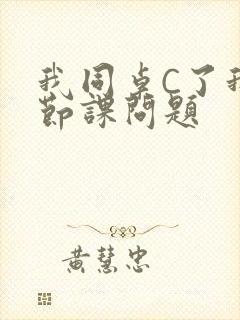 我同卓C了我
節課問題
黃慧忠